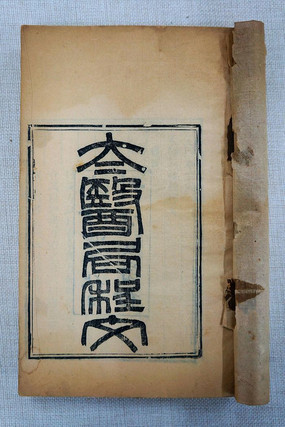 太醫局程文